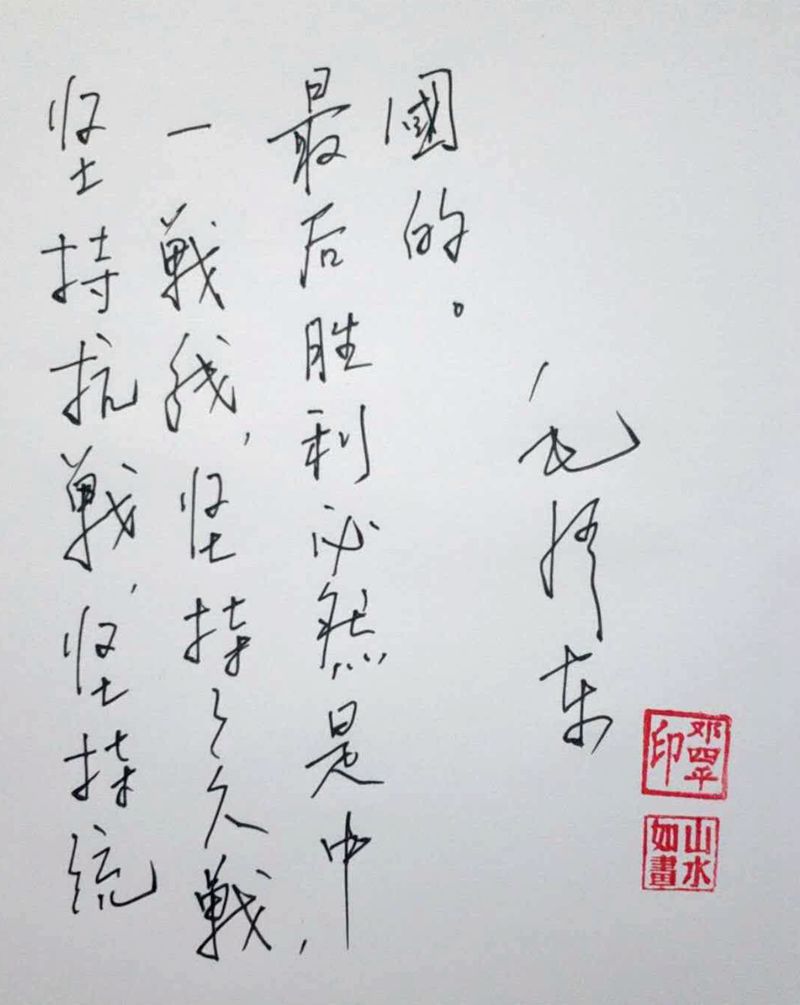 坚持抗戰,坚持统
一戰线,坚持々久戰,
最后胜利必然是中
國的。
毛泽东
邓四平印
山水如畫